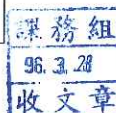 課務組
96.3.28
收文章